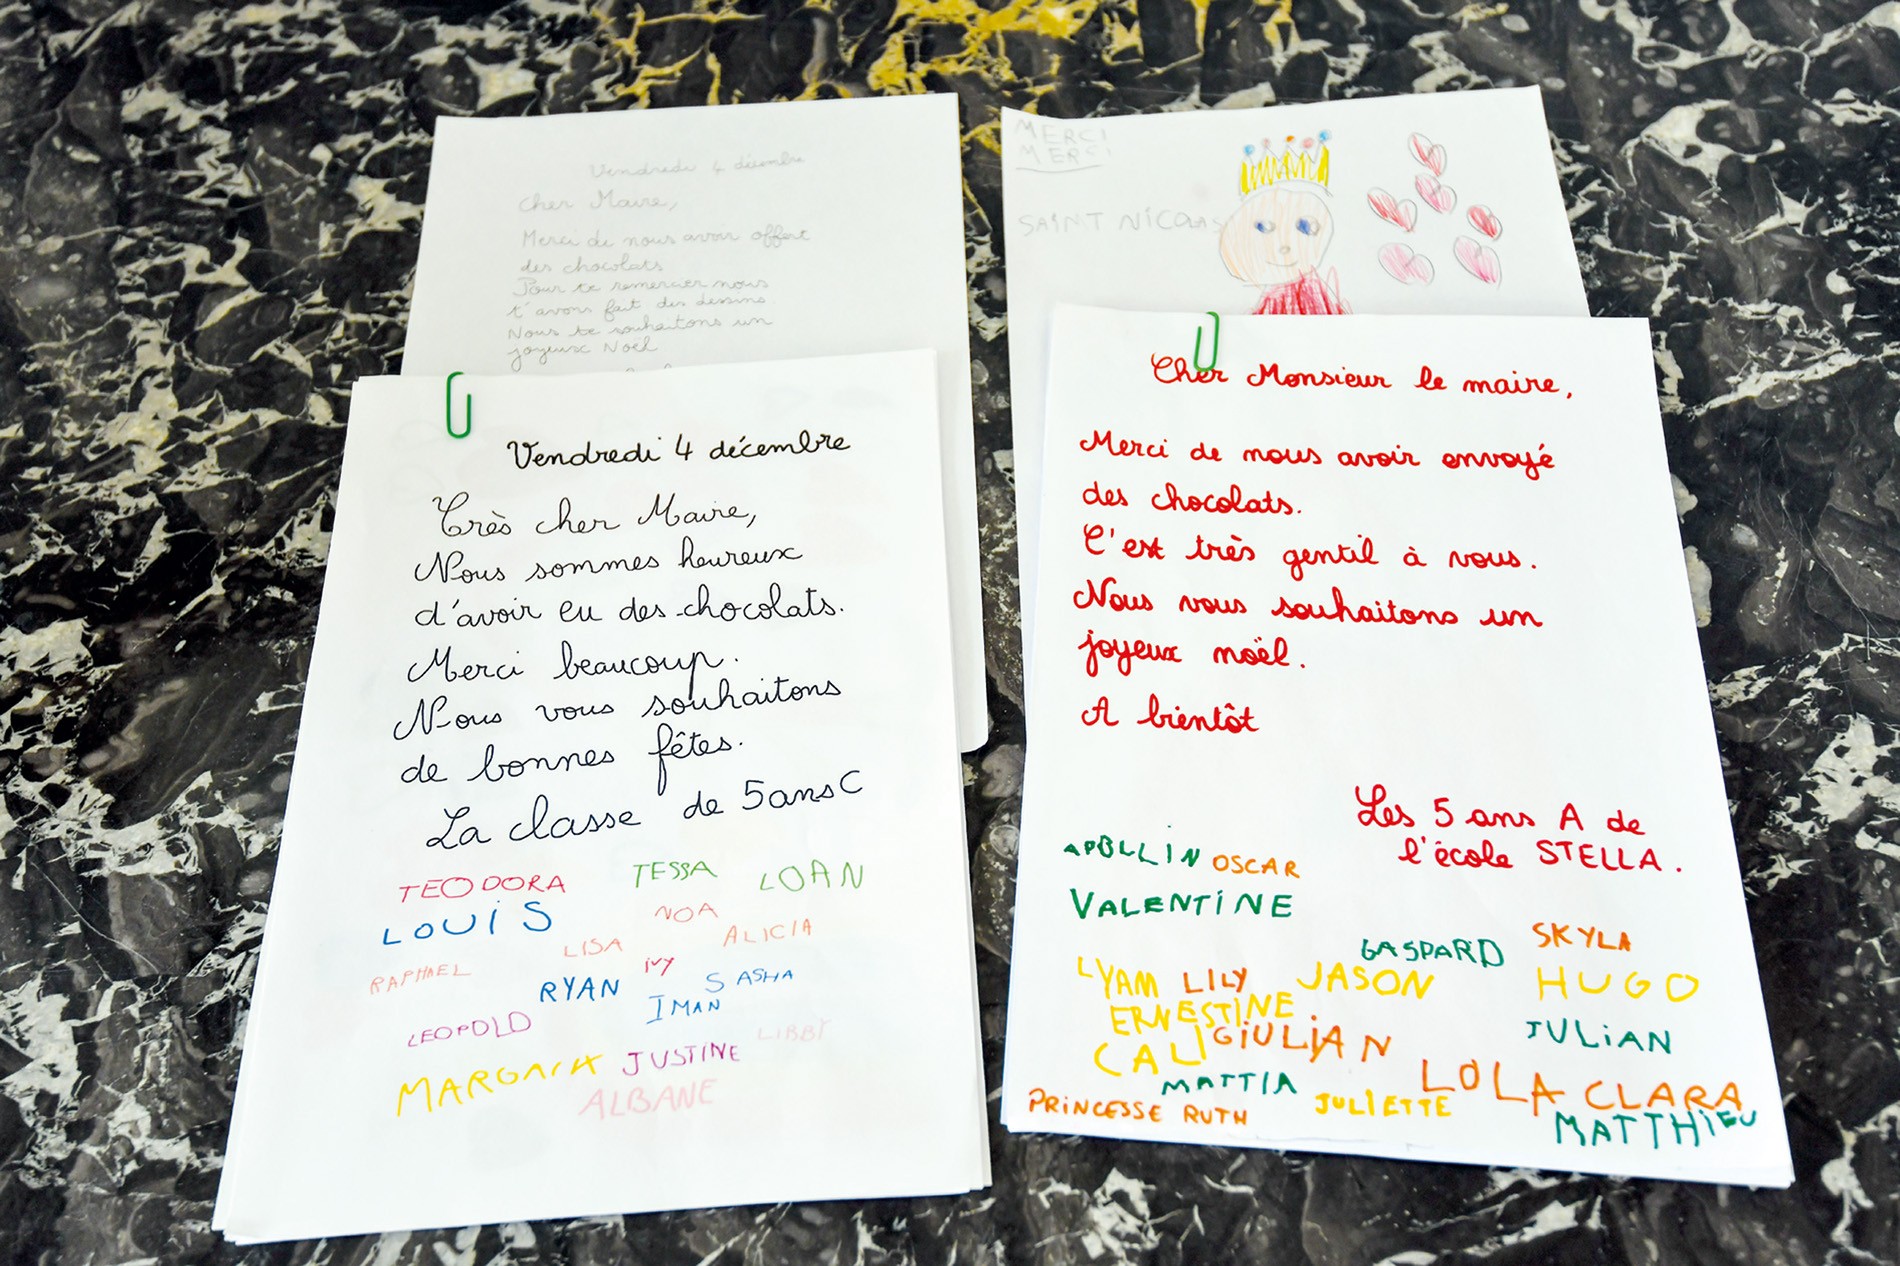 Vendredi 4 décembre
Cher Maire,
Merci de nous avoir offert
des chocolats
Pour te remercier nous
t'avons fait des dessins
Nous te souhaitons un
joyeux Noël
MERCI
MERCI
SAINT NICOLAS
Vendredi 4 décembre
Très cher Maire,
Nous sommes heureux
d'avoir eu des chocolats.
Merci beaucoup.
Nous vous souhaitons
de bonnes fêtes.
La classe de 5ans C
TEODORA TESSA LOAN
LOUiS NOA
LISA ALICIA
RAPHAEL RYAN iVY SASHA
IMAN
LEOPOLD LIBBY
JUSTINE
ALBANE
Cher Monsieur le maire,
Merci de nous avoir envoyé
des chocolats.
C'est très gentil à vous.
Nous vous souhaitons un
joyeux noël.
A bientôt
Les 5 ans A de
l'école STELLA.
APOLLiN OSCAR
VALENTiNE
GASPARD SKYLA
LYAM LILY JASON HUGO
ERNESTINE
GiULiAN JULiAN
CALI
MATTIA LOLA CLARA
PRiNCESSE RUTH JULiETTE
MATTHiEU